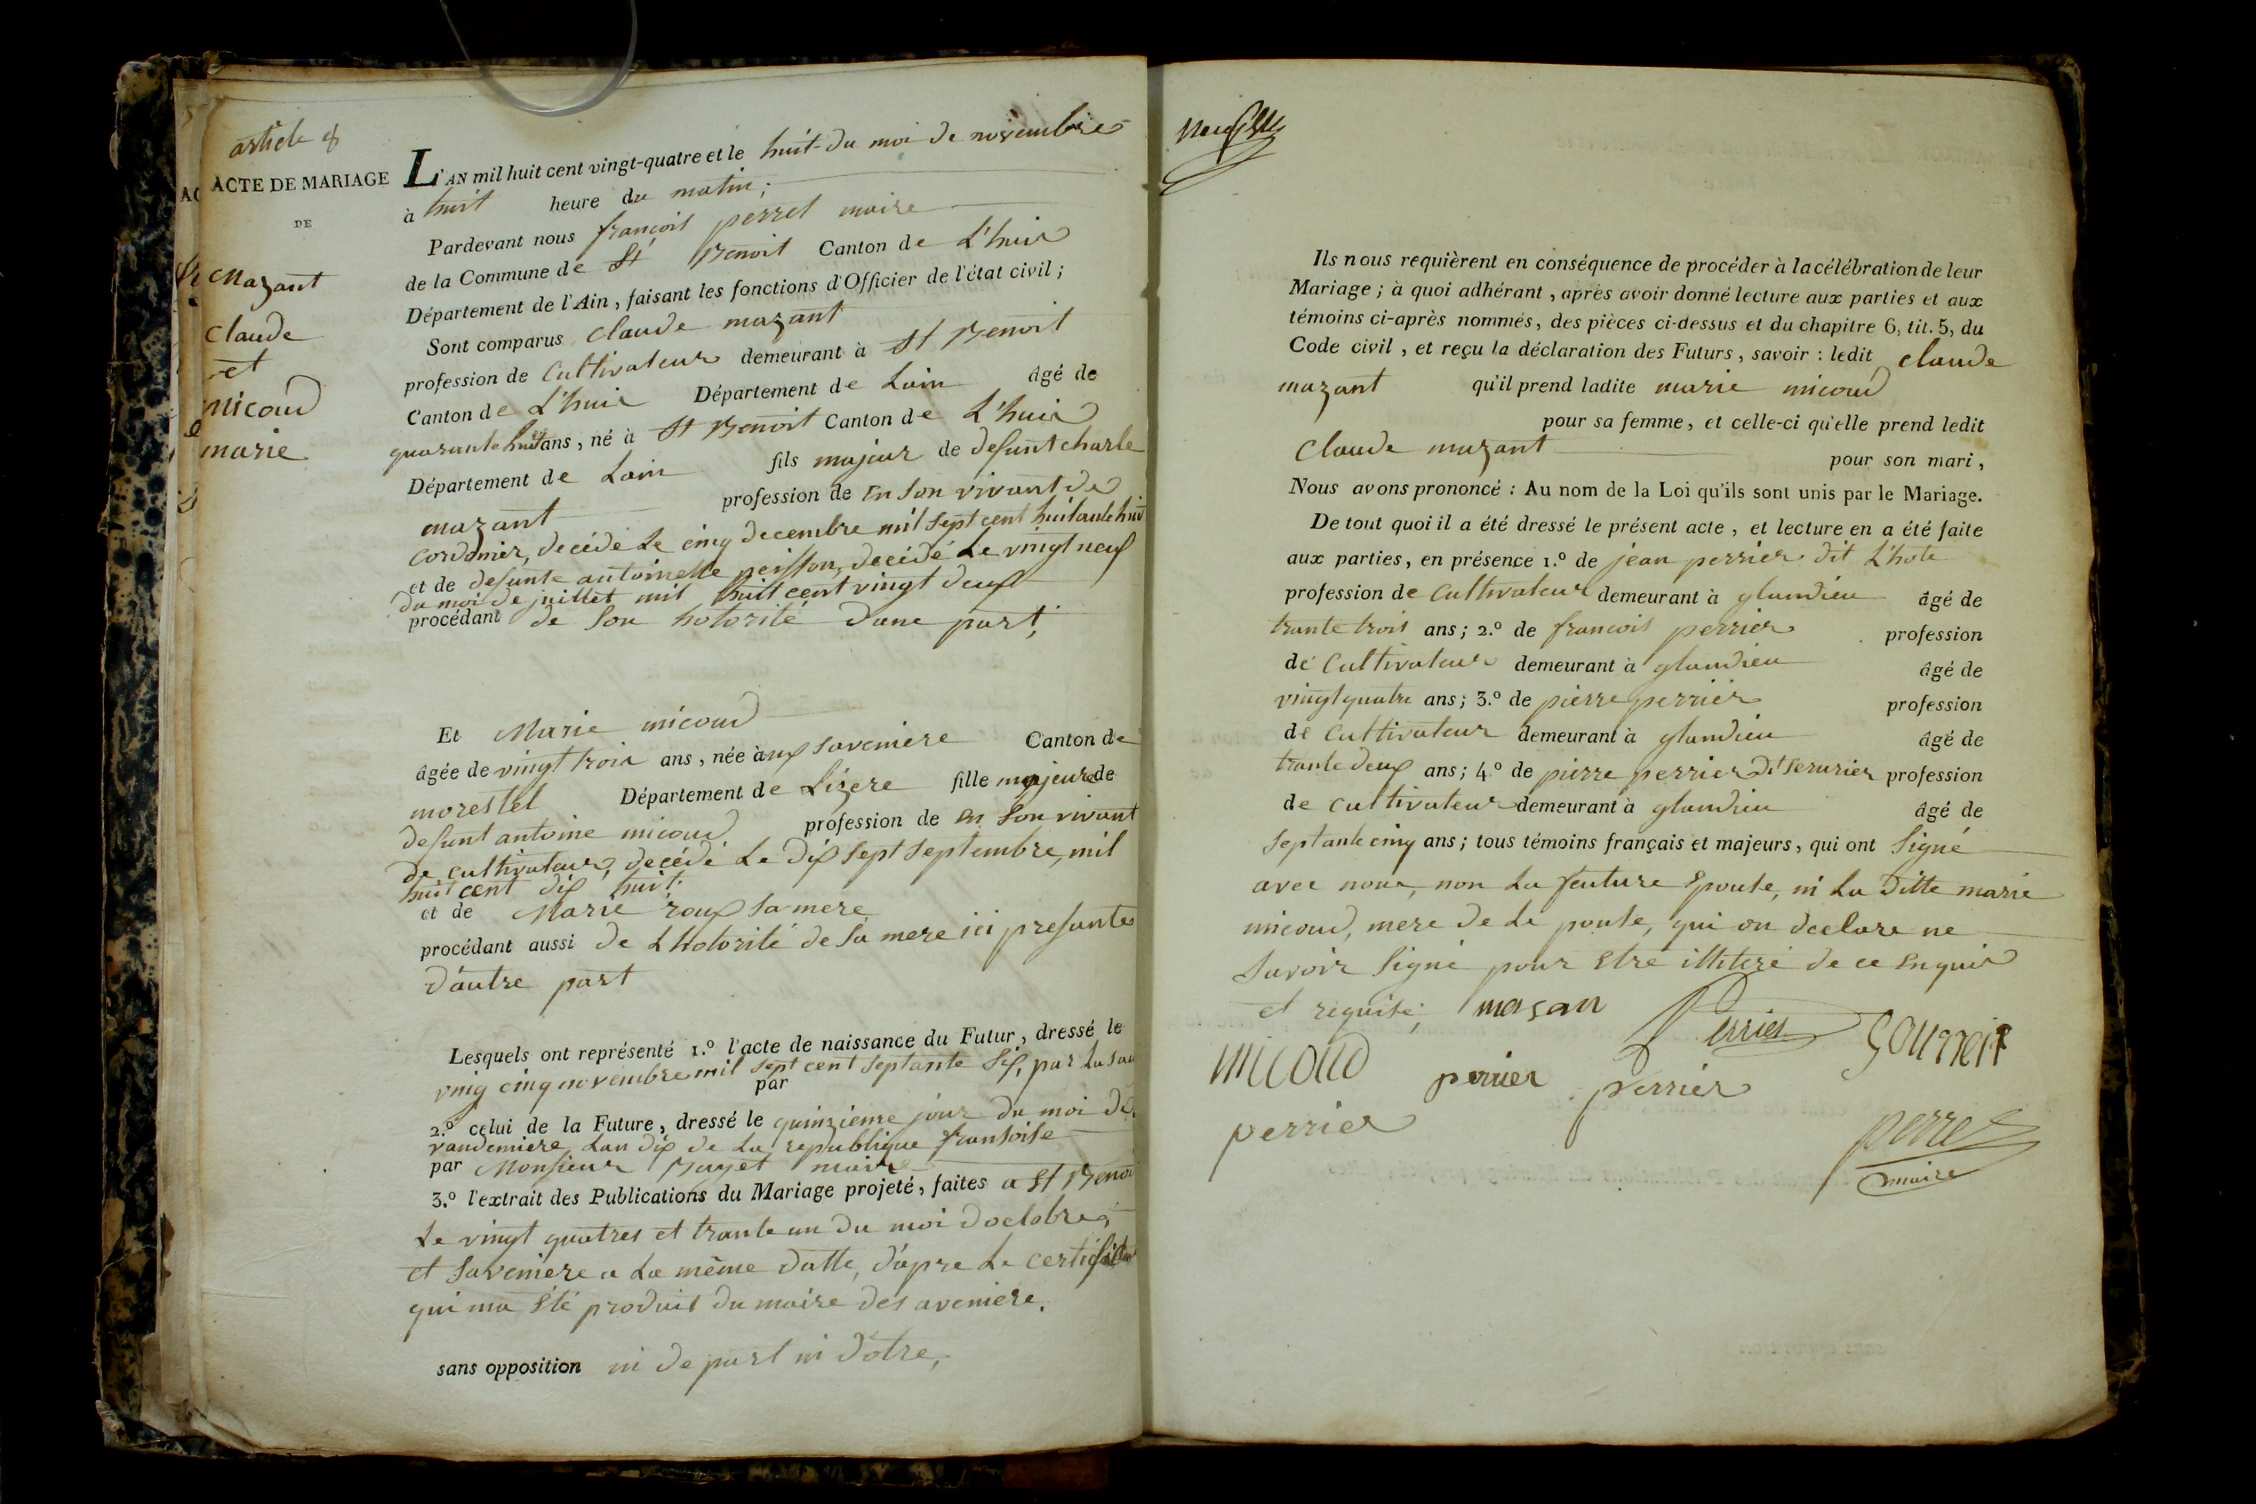 article 8
ACTE DE MARIAGE
DE
Mazant
Claude
et
micoud
marie
L'AN mil huit cent vingt-quatre et le huit du moi de novembre
à huit heure du matin;
Pardevant nous françois perret maire
de la Commune de St Benoit Canton de L'huis
Département de l'Ain, faisant les fonctions d'Officier de l'état civil;
Sont comparus Claude mazant
profession de Cultivateur demeurant à St Benoit
Canton de L'huis Département de Lain âgé de
quarante huit ans, né à St Benoit Canton de L'huis
Département de Lain fils majeur de defunt charle
mazant profession de En Son vivant de
Cordonier, decédé Le cinq decembre mil sept cent huitante huit
et de defunte antoinette peisson, decédé Le vingt neuf
du moi de juillet mil huit cent vingt deux
procédant de Son hotorité dune part;
Et Marie micoud
âgée de vingt trois ans, née à aux saveniere Canton de
morestel Département de Lizere fille majeure de
defunt antoine micoud profession de En Son vivant
de cultivateur, decédé Le dix Sept Septembre, mil
huit cent dix huit;
et de Marie roux Sa mere
procédant aussi de Lhotorité de Sa mere ici presante
d'autre part
Lesquels ont représenté 1.º l'acte de naissance du Futur, dressé le
vnig cinq novembre mil sept cent Septante Six, par
par
2.º celui de la Future, dressé le quinzieme jour du moi de
vandemiere Lan dix de La republique fransoise
par Monsieur maire
3.º l'extrait des Publications du Mariage projeté, faites a St Benoi
Le vingt quatres et trante un du moi doctobre,
et Saveniere a La même datte, d'apre Le certificat
qui ma Eté produit du maire des aveniere.
sans opposition ni de part ni d'otre,
Ils nous requièrent en conséquence de procéder à la célébration de leur
Mariage; à quoi adhérant, après avoir donné lecture aux parties et aux
témoins ci-après nommés, des pièces ci-dessus et du chapitre 6, tit. 5, du
Code civil, et reçu la déclaration des Futurs, savoir: ledit claude
mazant qu'il prend ladite marie micoud
pour sa femme, et celle-ci qu'elle prend ledit
Claude mazant pour son mari,
Nous avons prononcé: Au nom de la Loi qu'ils sont unis par le Mariage.
De tout quoi il a été dressé le présent acte, et lecture en a été faite
aux parties, en présence 1.º de jean perrier dit L'hote
profession de Cultivateur demeurant à glandieu âgé de
trante trois ans; 2.º de francois perrier profession
de Cultivateur demeurant à glandieu âgé de
vingt quatre ans; 3.º de pierre perrier profession
de Cultivateur demeurant à glandieu âgé de
trante deux ans; 4.º de pierre perrier dit Serurier profession
de Cultivateur demeurant à glandieu âgé de
Septante cinq ans; tous témoins français et majeurs, qui ont Signé
avec nous, non La feuture Epouse, ni La ditte marie
micoud, mere de Le pouse, qui on declare ne
Savoir Signé pour Etre illiteré de ce Enquis
et requise; mazan Perrier
micoud perrier perrier
perrier perret
maire